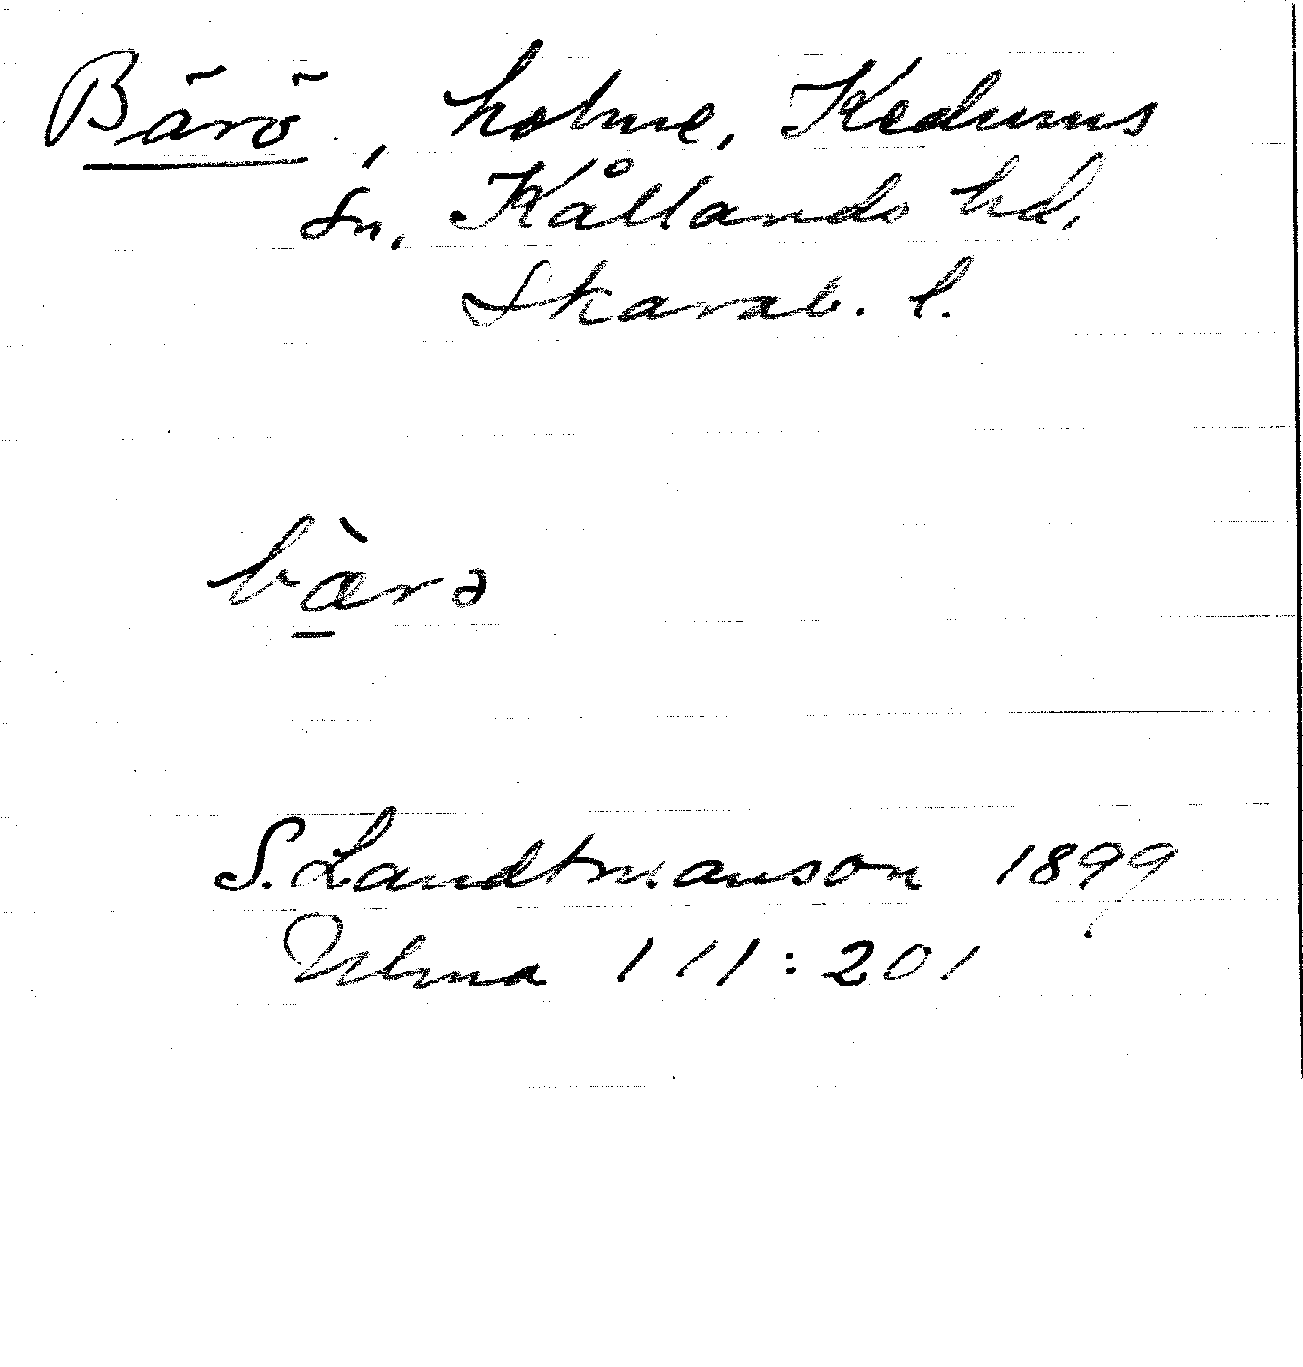 Bärö, holme, Kedums
sn, Kållands hd,
Skarab. l.
bæ̱̀rə
S. Landtmanson 1899
Ulma 111:201